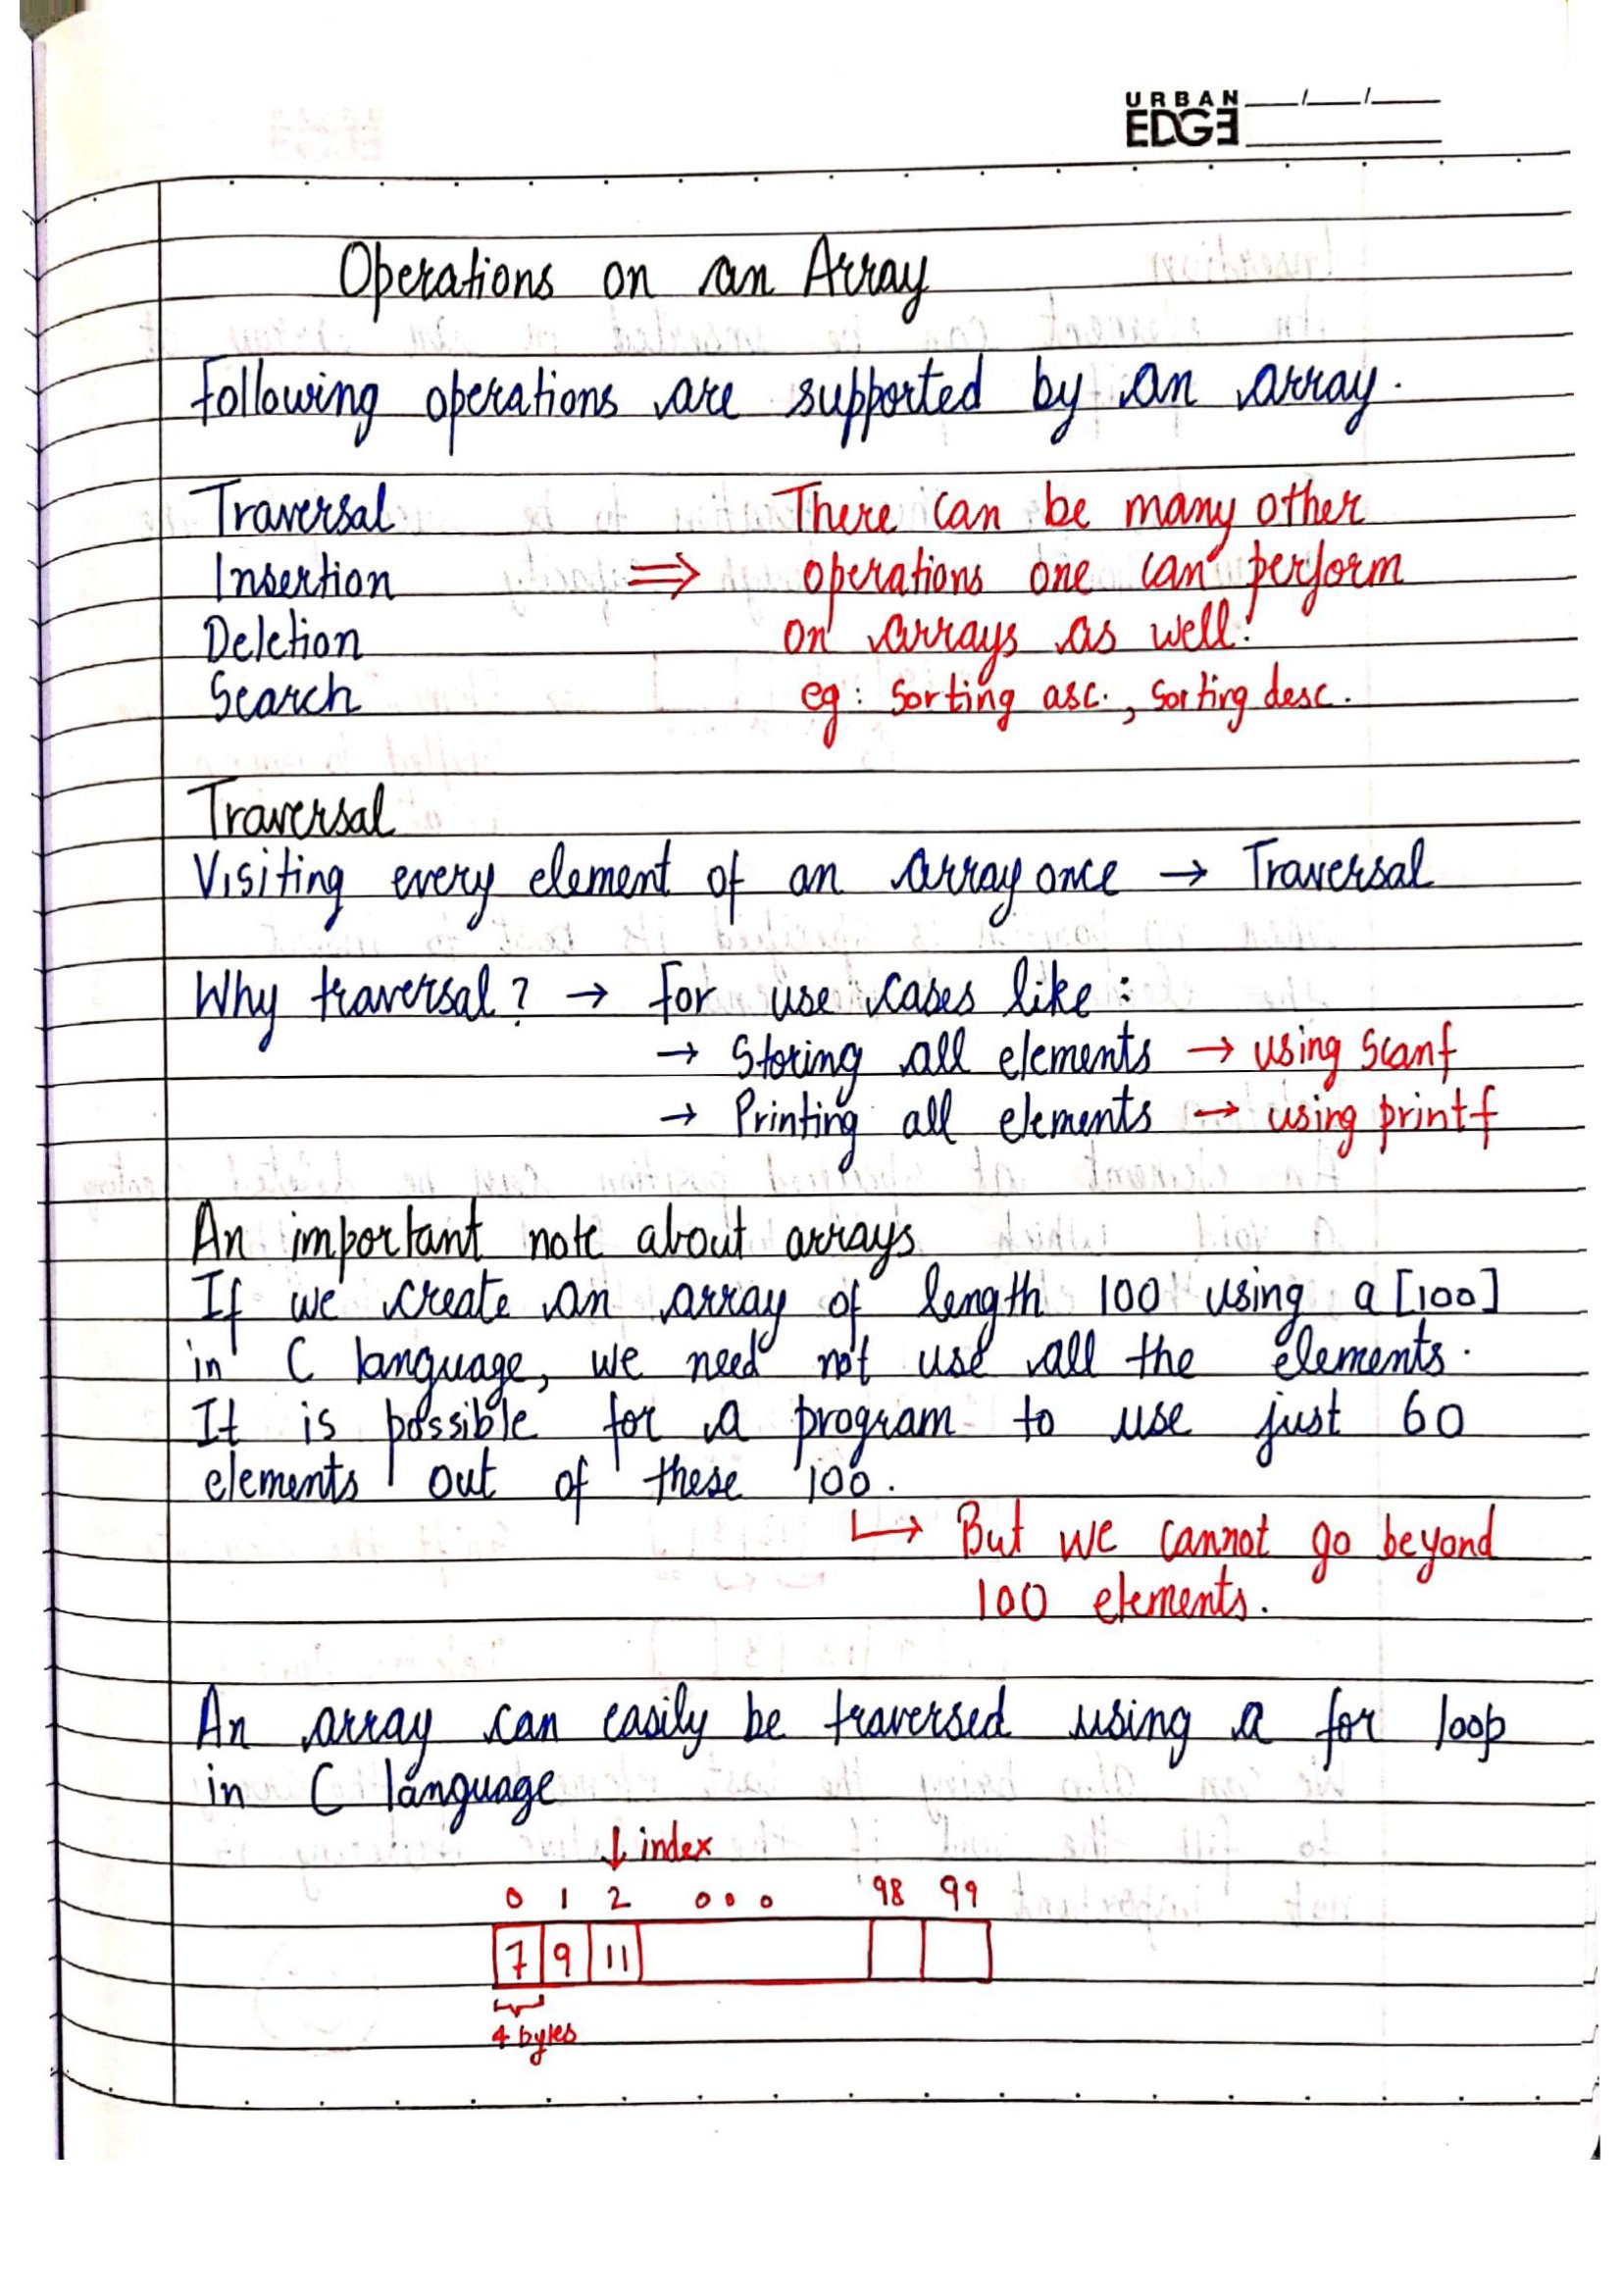 URBAN
EDGE
Operations on an Array
Following operations are supported by an array.
Traversal
Insertion
Deletion
Search
⇒ There can be many other
operations one can perform
on arrays as well.
eg: Sorting asc., Sorting desc.
Traversal
Visiting every element of an array once → Traversal
Why traversal? → For use cases like:
→ Storing all elements → using Scanf
→ Printing all elements → using printf
An important note about arrays
If we create an array of length 100 using a[100]
in C language, we need not use all the elements.
It is possible for a program to use just 60
elements out of these 100.
↳ But we cannot go beyond
100 elements.
An array can easily be traversed using a for loop
in C language
↓ index
0 1 2 ... 98 99
7 9 11
4 bytes